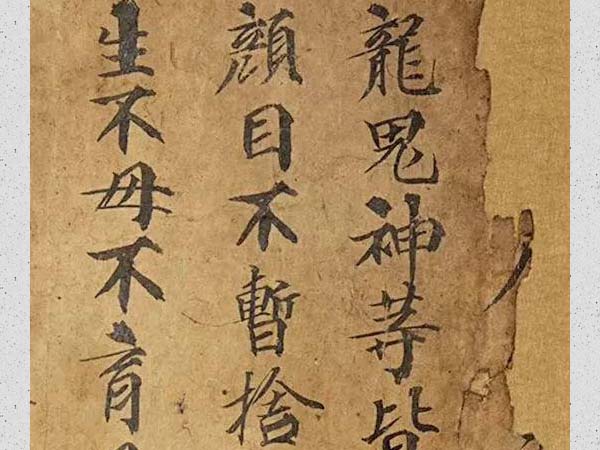 龍鬼神等皆
顏目不暫捨
生不毋不育